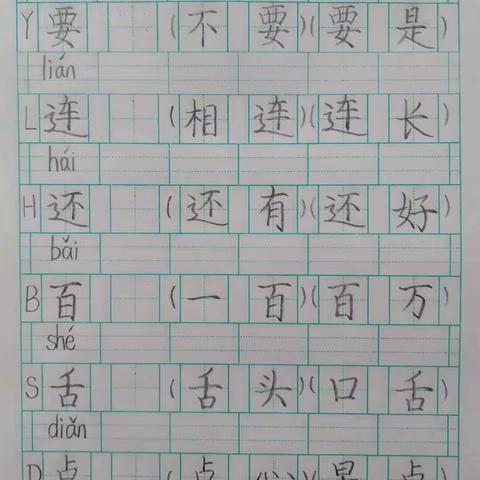 Y 要 (不要)(要是)
lián
L 连 (相连)(连长)
hái
H 还 (还有)(还好)
bǎi
B 百 (一百)(百万)
shé
S 舌 (舌头)(口舌)
diǎn
D 点 (点心)(早点)